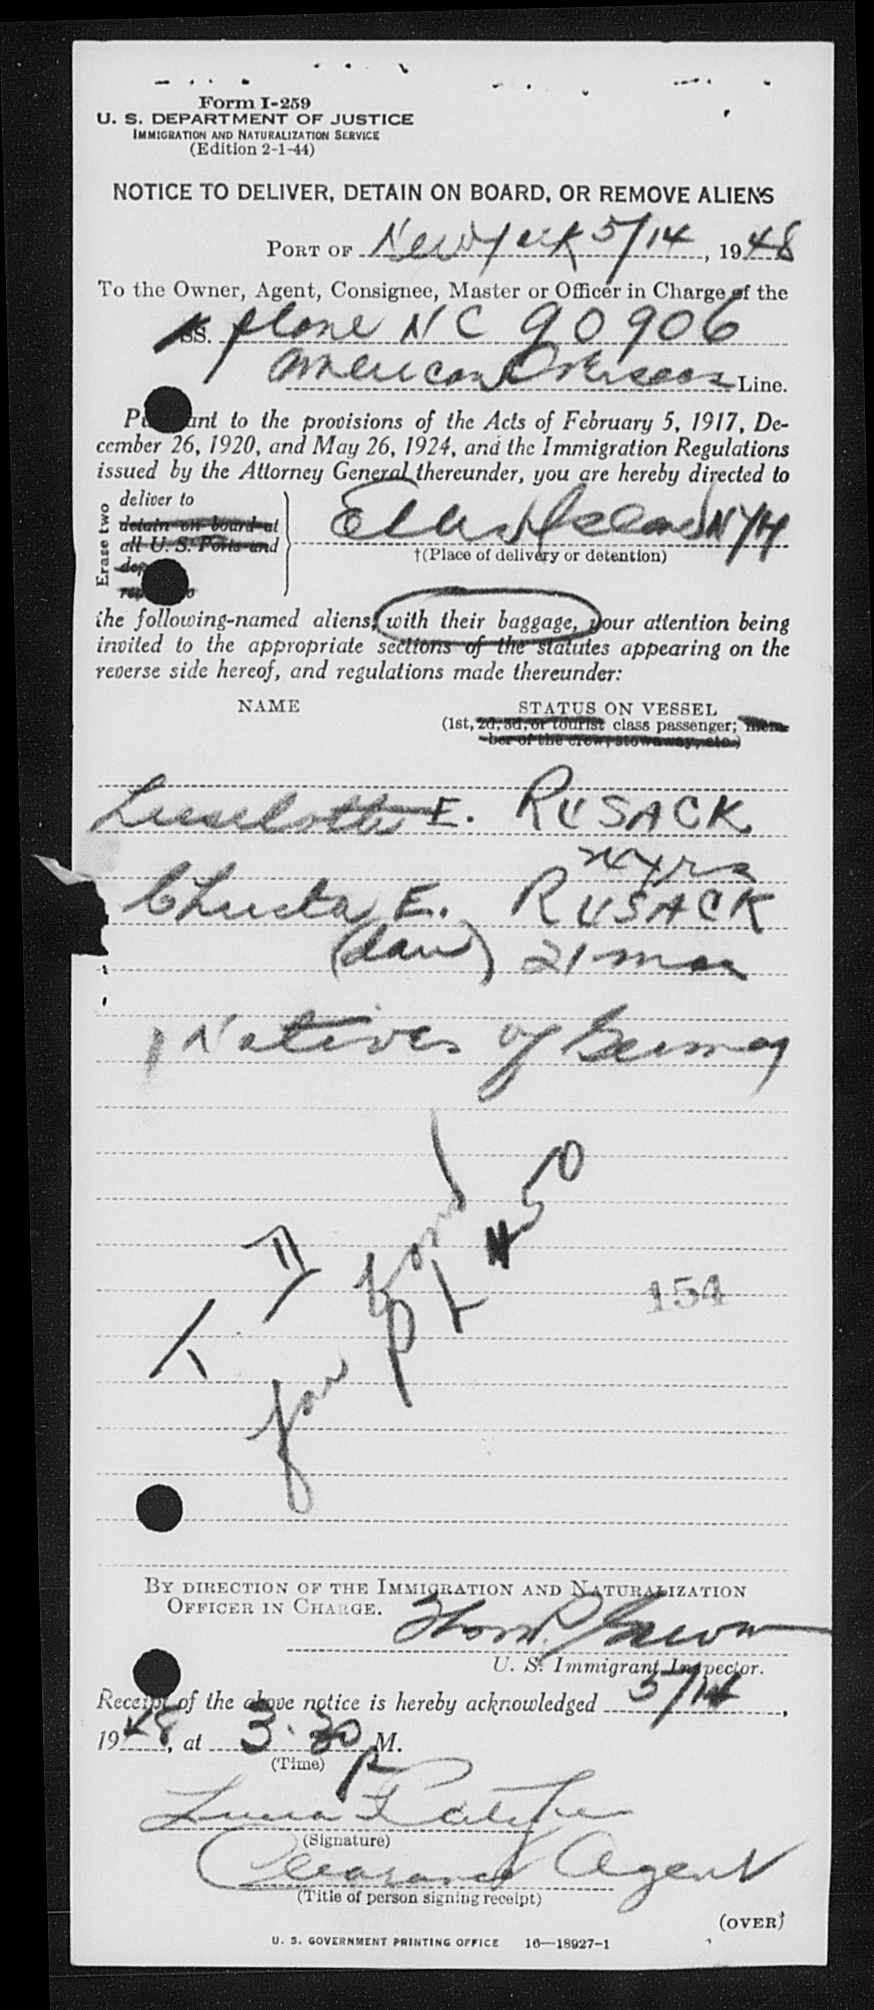 Form I-259
U. S. DEPARTMENT OF JUSTICE
IMMIGRATION AND NATURALIZATION SERVICE
(Edition 2-1-44)
NOTICE TO DELIVER, DETAIN ON BOARD, OR REMOVE ALIENS
PORT OF New York 5/14, 1948
To the Owner, Agent, Consignee, Master or Officer in Charge of the
SS. plane NC 90906
American Overseas Line.
Pursuant to the provisions of the Acts of February 5, 1917, De-
cember 26, 1920, and May 26, 1924, and the Immigration Regulations
issued by the Attorney General thereunder, you are hereby directed to
Erase two
deliver to
detain on board at
all U. S. Ports and
Ellis Island NYH
†(Place of delivery or detention)
the following-named aliens, with their baggage, your attention being
invited to the appropriate sections of the statutes appearing on the
reverse side hereof, and regulations made thereunder:
NAME
STATUS ON VESSEL
(1st, 2d, 3d, or tourist class passenger; mem-
ber of the crew, stowaway, etc.)
Lieselotte E. RUSACK
yrs
E. RUSACK
(dau) 21 mos
Natives of Germany
for bond
50
154
BY DIRECTION OF THE IMMIGRATION AND NATURALIZATION
OFFICER IN CHARGE.
U. S. Immigrant Inspector.
Receipt of the above notice is hereby acknowledged 5/14,
1948, at 3:30 P M.
(Time)
(Signature)
Clearance Agent
(Title of person signing receipt)
(OVER)
U. S. GOVERNMENT PRINTING OFFICE 16—18927-1